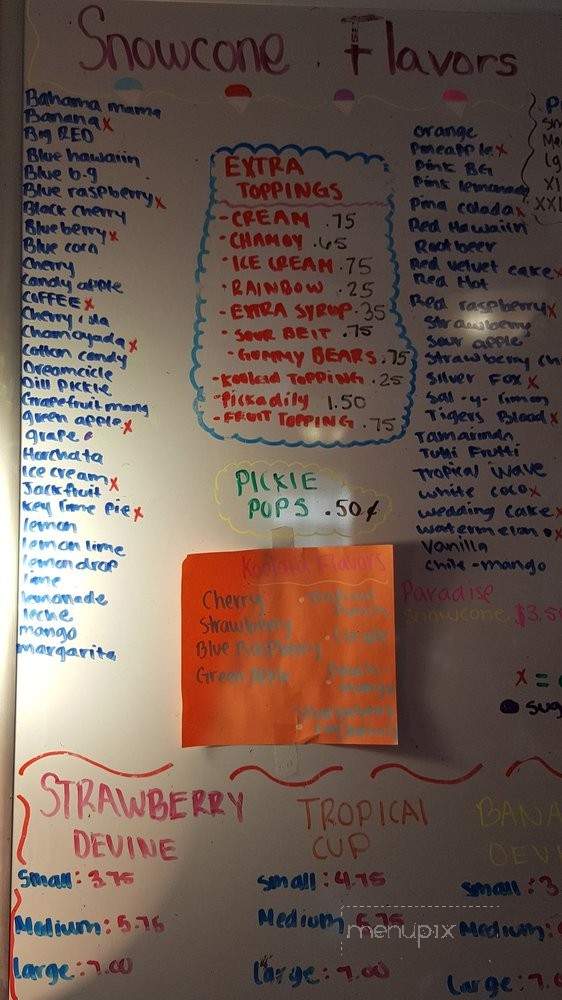 Snowcone Flavors
Bahama mama
Banana x
Big RED
Blue hawaiin
Blue b.g
Blue raspberry x
Black cherry
Blueberry x
Blue corn
Cherry
Candy apple
COFFEE x
Cherry isla
Chamoyada x
Cotton candy
Dreamcicle
Dill PICKLE
Grapefruit mang
green apple x
grape
Horchata
Ice cream x
Jackfruit
Key lime pie x
lemon
lemon lime
lemon drop
lime
lemonade
leche
mango
margarita
EXTRA
TOPPINGS
- CREAM .75
- CHAMOY .65
- ICE CREAM .75
- RAINBOW .25
- EXTRA SYRUP .35
- SOUR BELT .75
- GUMMY BEARS .75
- Koolaid TOPPING .25
- Pickadily 1.50
- FRUIT TOPPING .75
PICKIE
POPS .50¢
Koolaid Flavors
Cherry
Strawberry
Blue Raspberry
Green Apple
orange
Pineapple x
Pink BG
Pink lemonade
Pina colada x
Red Hawaiin
Rootbeer
Red velvet cake x
Red Hot
Red raspberry x
Strawberry
Sour apple
Strawberry ch
Silver Fox x
Sal-y-limon
Tigers Blood x
Tamarindo
Tutti Frutti
Tropical wave
white coco x
wedding cake x
watermelon x
Vanilla
chile-mango
XXL
Paradise
Snowcone $3.5
x =
sug
STRAWBERRY
DEVINE
Small: 3.75
Medium: 5.75
Large: 7.00
TROPICAL
CUP
Small: 4.75
Medium: 5.75
Large: 7.00
BANA
DEVI
Small: 3
Medium:
Large: 7.0
menupix